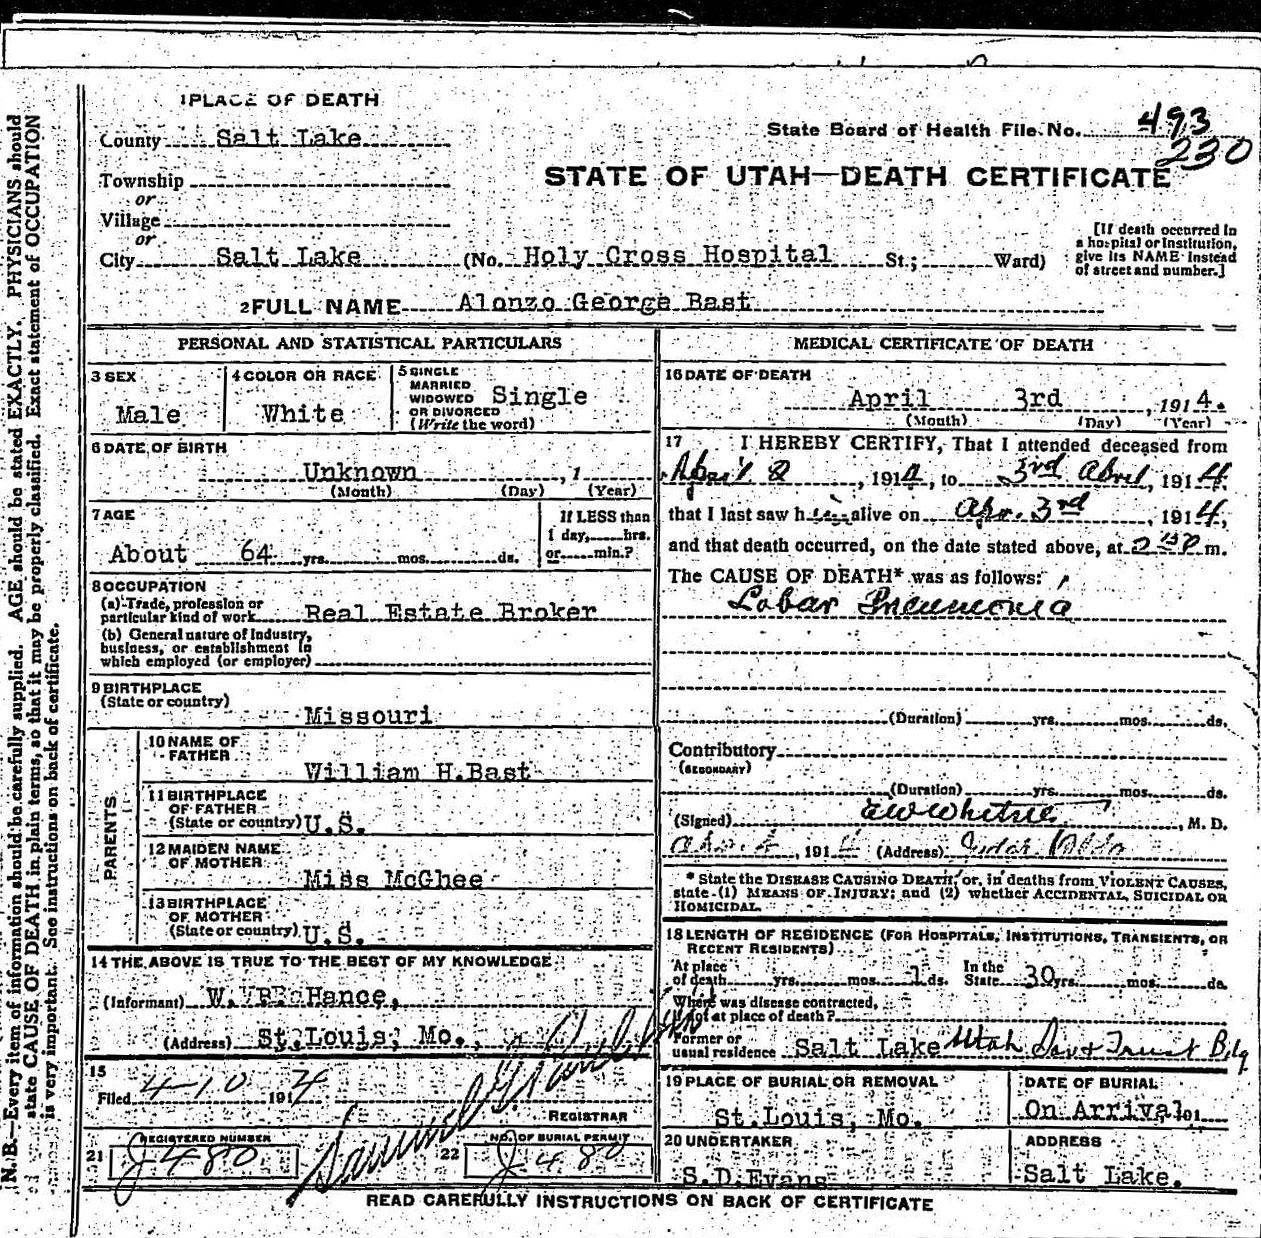 1 PLACE OF DEATH
County Salt Lake
State Board of Health File No. 493
230
Township
or
Village
or
STATE OF UTAH—DEATH CERTIFICATE
City Salt Lake (No. Holy Cross Hospital St.; Ward)
[If death occurred in
a hospital or Institution,
give its NAME instead
of street and number.]
2 FULL NAME Alonzo George Bast
PERSONAL AND STATISTICAL PARTICULARS
3 SEX
Male
4 COLOR OR RACE
White
5 SINGLE
MARRIED
WIDOWED
OR DIVORCED
(Write the word)
Single
6 DATE OF BIRTH
Unknown , 1
(Month) (Day) (Year)
7 AGE
About 64 yrs. mos. ds.
If LESS than
1 day, hrs.
or min.?
8 OCCUPATION
(a) Trade, profession or
particular kind of work Real Estate Broker
(b) General nature of Industry,
business, or establishment in
which employed (or employer)
9 BIRTHPLACE
(State or country)
Missouri
PARENTS
10 NAME OF
FATHER
William H.Bast
11 BIRTHPLACE
OF FATHER
(State or country) U.S.
12 MAIDEN NAME
OF MOTHER
Miss McGhee
13 BIRTHPLACE
OF MOTHER
(State or country) U.S.
14 THE ABOVE IS TRUE TO THE BEST OF MY KNOWLEDGE
(Informant) W. Hance,
(Address) St.Louis, Mo.,
15
Filed 4-10 1914
REGISTRAR
REGISTERED NUMBER
21 J 480
NO. OF BURIAL PERMIT
22 J 480
MEDICAL CERTIFICATE OF DEATH
16 DATE OF DEATH
April 3rd , 1914.
(Month) (Day) (Year)
17 I HEREBY CERTIFY, That I attended deceased from
April 2, 1914, to 3rd April, 1914.
that I last saw him alive on Apr. 3rd, 1914,
and that death occurred, on the date stated above, at m.
The CAUSE OF DEATH* was as follows:
Lobar Pneumonia
(Duration) yrs. mos. ds.
Contributory
(SECONDARY)
(Duration) yrs. mos. ds.
(Signed) , M. D.
, 191 (Address)
* State the DISEASE CAUSING DEATH, or, in deaths from VIOLENT CAUSES,
state (1) MEANS OF INJURY; and (2) whether ACCIDENTAL, SUICIDAL OR
HOMICIDAL.
18 LENGTH OF RESIDENCE (FOR HOSPITALS, INSTITUTIONS, TRANSIENTS, OR
RECENT RESIDENTS)
At place
of death yrs. mos. 1 ds.
In the
State 30 yrs. mos. ds.
Where was disease contracted,
if not at place of death?
Former or
usual residence Salt Lake Utah Sav & Trust Bldg
19 PLACE OF BURIAL OR REMOVAL
St.Louis, Mo.
DATE OF BURIAL
On Arrival 191
20 UNDERTAKER
S.D.Evans
ADDRESS
Salt Lake.
READ CAREFULLY INSTRUCTIONS ON BACK OF CERTIFICATE
N. B.—Every item of information should be carefully supplied. AGE should be stated EXACTLY. PHYSICIANS should
state CAUSE OF DEATH in plain terms, so that it may be properly classified. Exact statement of OCCUPATION
is very important. See instructions on back of certificate.